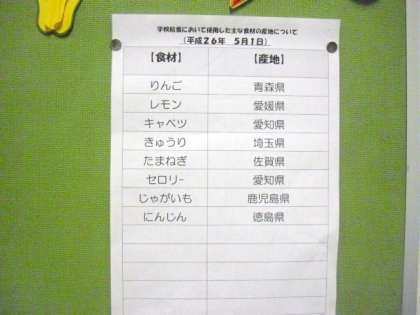 学校給食において使用した主な食材の産地について
（平成２６年　５月１日）
【食材】　【産地】
りんご　青森県
レモン　愛媛県
キャベツ　愛知県
きゅうり　埼玉県
たまねぎ　佐賀県
セロリｰ　愛知県
じゃがいも　鹿児島県
にんじん　徳島県